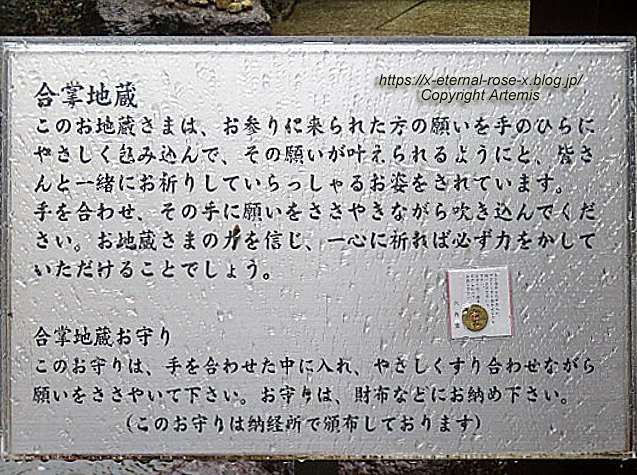 https://x-eternal-rose-x.blog.jp/
Copyright Artemis
合掌地蔵
このお地蔵さまは、お参りに来られた方の願いを手のひらに
やさしく包み込んで、その願いが叶えられるようにと、皆さ
んと一緒にお祈りしていらっしゃるお姿をされています。
手を合わせ、その手に願いをささやきながら吹き込んでくだ
さい。お地蔵さまの力を信じ、一心に祈れば必ず力をかして
いただけることでしょう。
合掌地蔵お守り
このお守りは、手を合わせた中に入れ、やさしくすり合わせながら
願いをささやいて下さい。お守りは、財布などにお納め下さい。
(このお守りは納経所で頒布しております)
六角堂